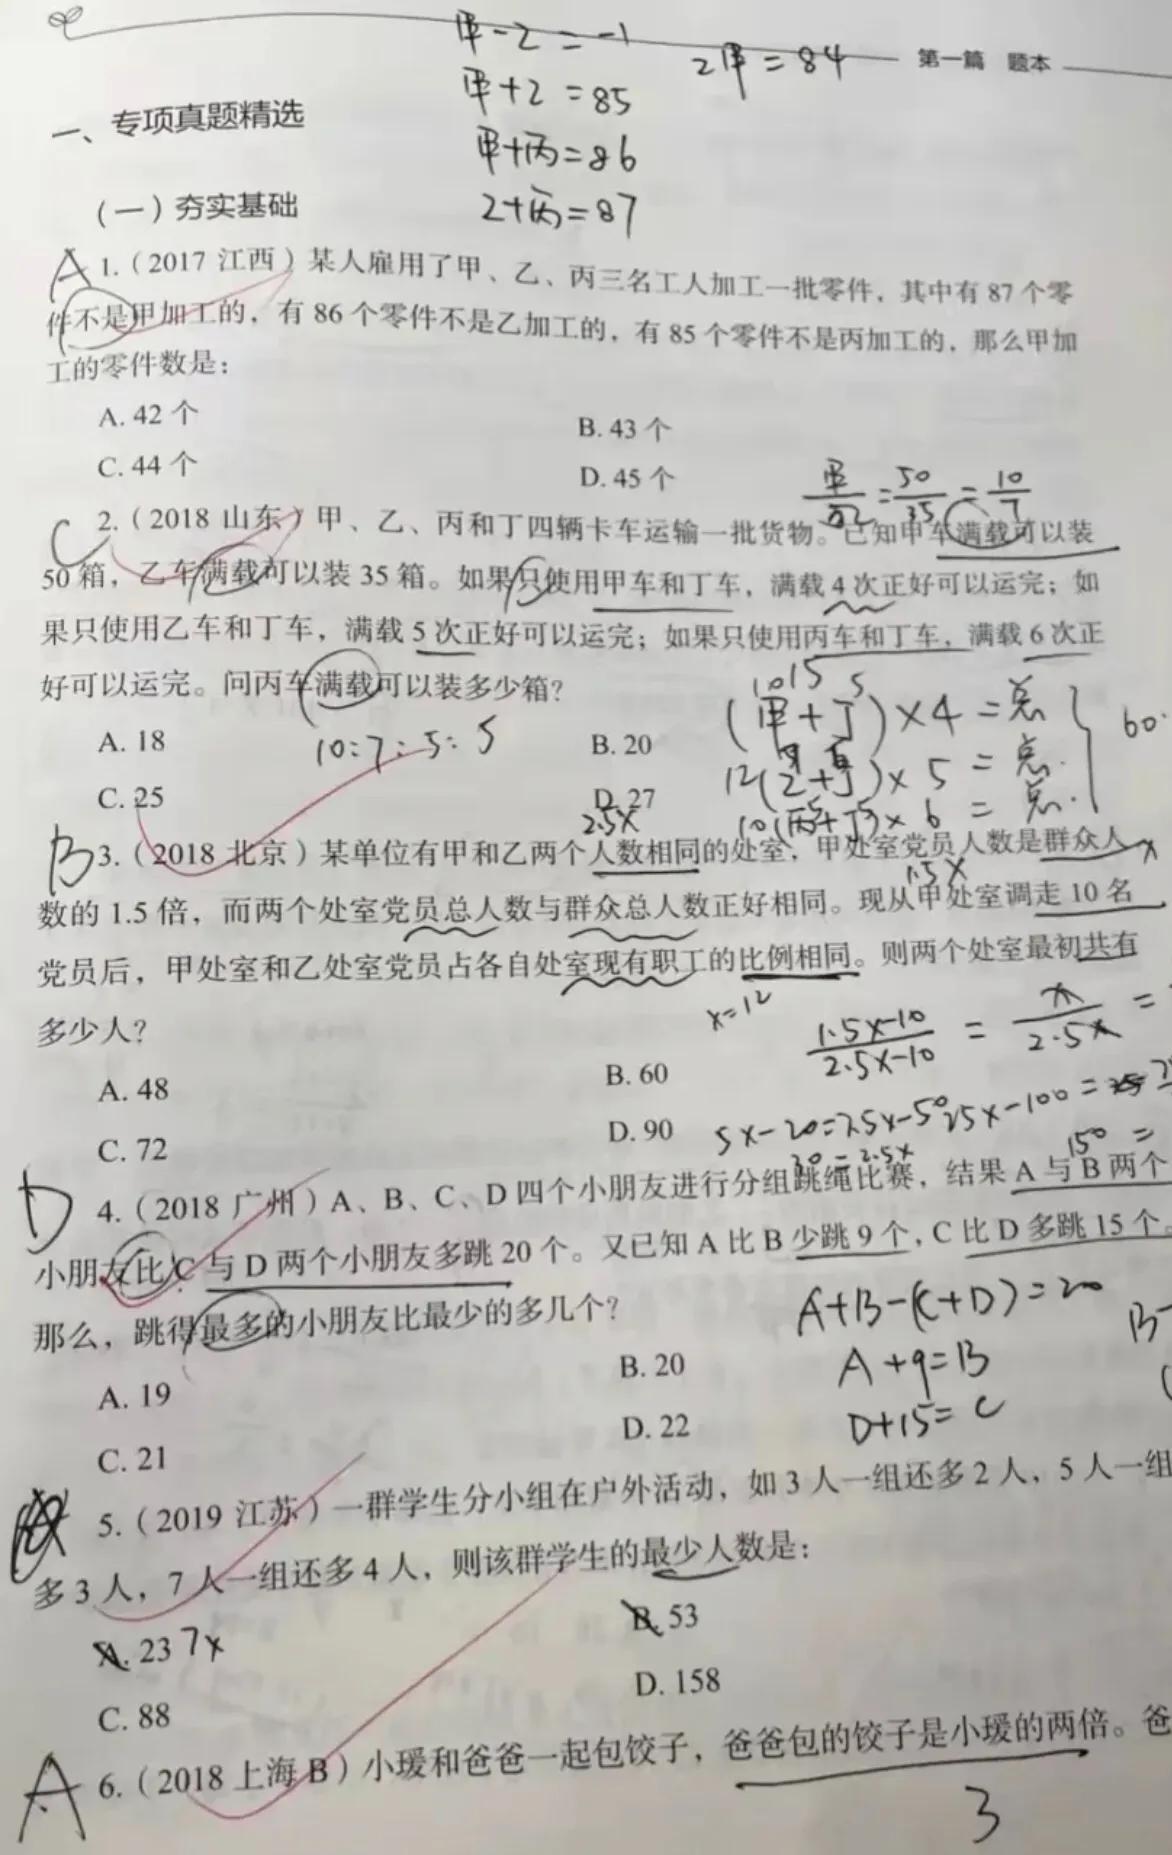 甲-乙=-1
2甲=84
第一篇 题本
甲+乙=85
一、专项真题精选
甲+丙=86
（一）夯实基础
乙+丙=87
A
1.（2017 江西）某人雇用了甲、乙、丙三名工人加工一批零件，其中有 87 个零
件不是甲加工的，有 86 个零件不是乙加工的，有 85 个零件不是丙加工的，那么甲加
工的零件数是：
A. 42 个
B. 43 个
C. 44 个
D. 45 个
C
2.（2018 山东）甲、乙、丙和丁四辆卡车运输一批货物。已知甲车满载可以装
50 箱，乙车满载可以装 35 箱。如果只使用甲车和丁车，满载 4 次正好可以运完；如
果只使用乙车和丁车，满载 5 次正好可以运完；如果只使用丙车和丁车，满载 6 次正
好可以运完。问丙车满载可以装多少箱？
1015 5
(甲+丁)×4=总
60
A. 18
10:7:5:5
B. 20
12(乙+丁)×5=总
C. 25
D. 27
10(丙+丁)×6=总
2.5x
B
3.（2018 北京）某单位有甲和乙两个人数相同的处室，甲处室党员人数是群众人
x
1.5x
数的 1.5 倍，而两个处室党员总人数与群众总人数正好相同。现从甲处室调走 10 名
党员后，甲处室和乙处室党员占各自处室现有职工的比例相同。则两个处室最初共有
多少人？
x=12
1.5x-10/2.5x-10 = x/2.5x =
A. 48
B. 60
C. 72
D. 90
5x-20=2.5x-50
25x-100=
30=2.5x
150=
D
4.（2018 广州）A、B、C、D 四个小朋友进行分组跳绳比赛，结果 A 与 B 两个
小朋友比 C 与 D 两个小朋友多跳 20 个。又已知 A 比 B 少跳 9 个，C 比 D 多跳 15 个。
那么，跳得最多的小朋友比最少的多几个？
A+B-(C+D)=20
A. 19
B. 20
A+9=B
C. 21
D. 22
D+15=C
5.（2019 江苏）一群学生分小组在户外活动，如 3 人一组还多 2 人，5 人一组
多 3 人，7 人一组还多 4 人，则该群学生的最少人数是：
A. 23 7x
B. 53
C. 88
D. 158
A
6.（2018 上海 B）小瑗和爸爸一起包饺子，爸爸包的饺子是小瑗的两倍。爸
3